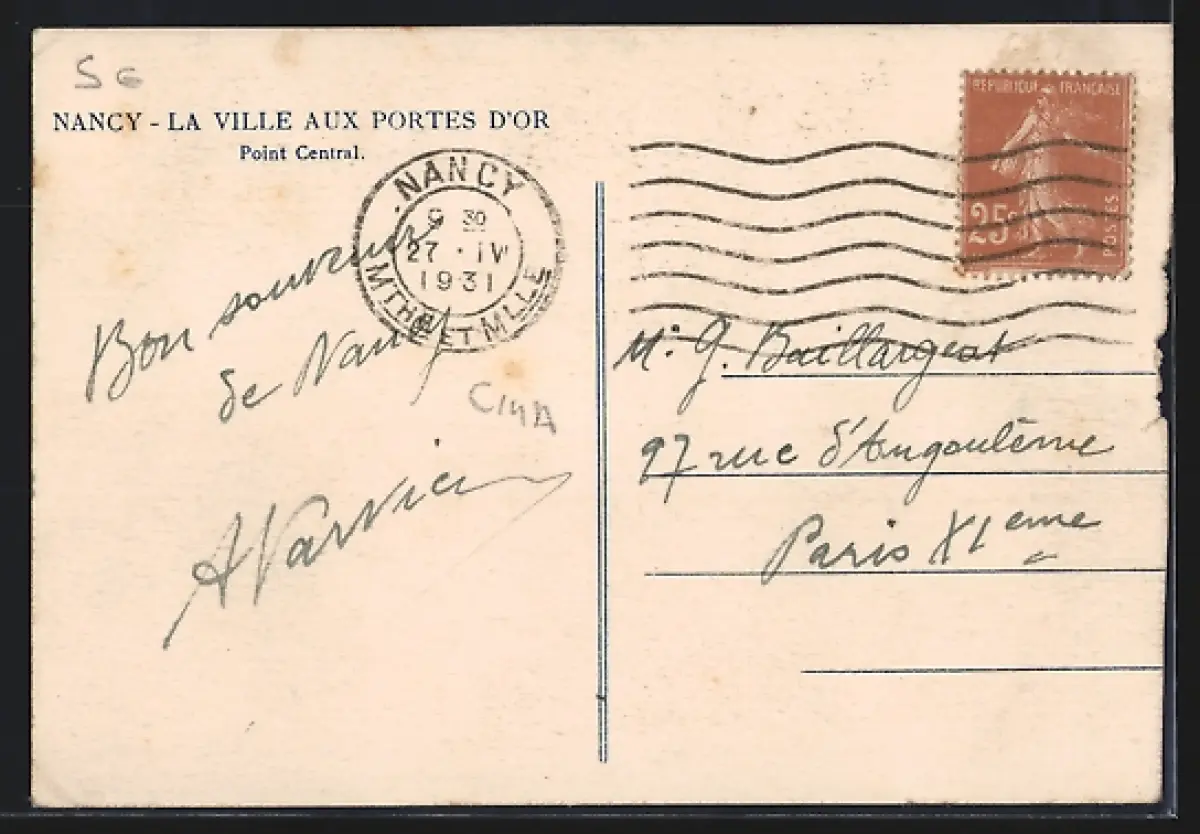 S G
NANCY - LA VILLE AUX PORTES D'OR
Point Central.
NANCY
9 30
27 · IV
1931
MTHE ET MLLE
RÉPUBLIQUE FRANÇAISE
25c
POSTES
Bon souvenir
de Nancy
M. G. Baillargeat
97 rue d'Angoulême
Paris XIeme